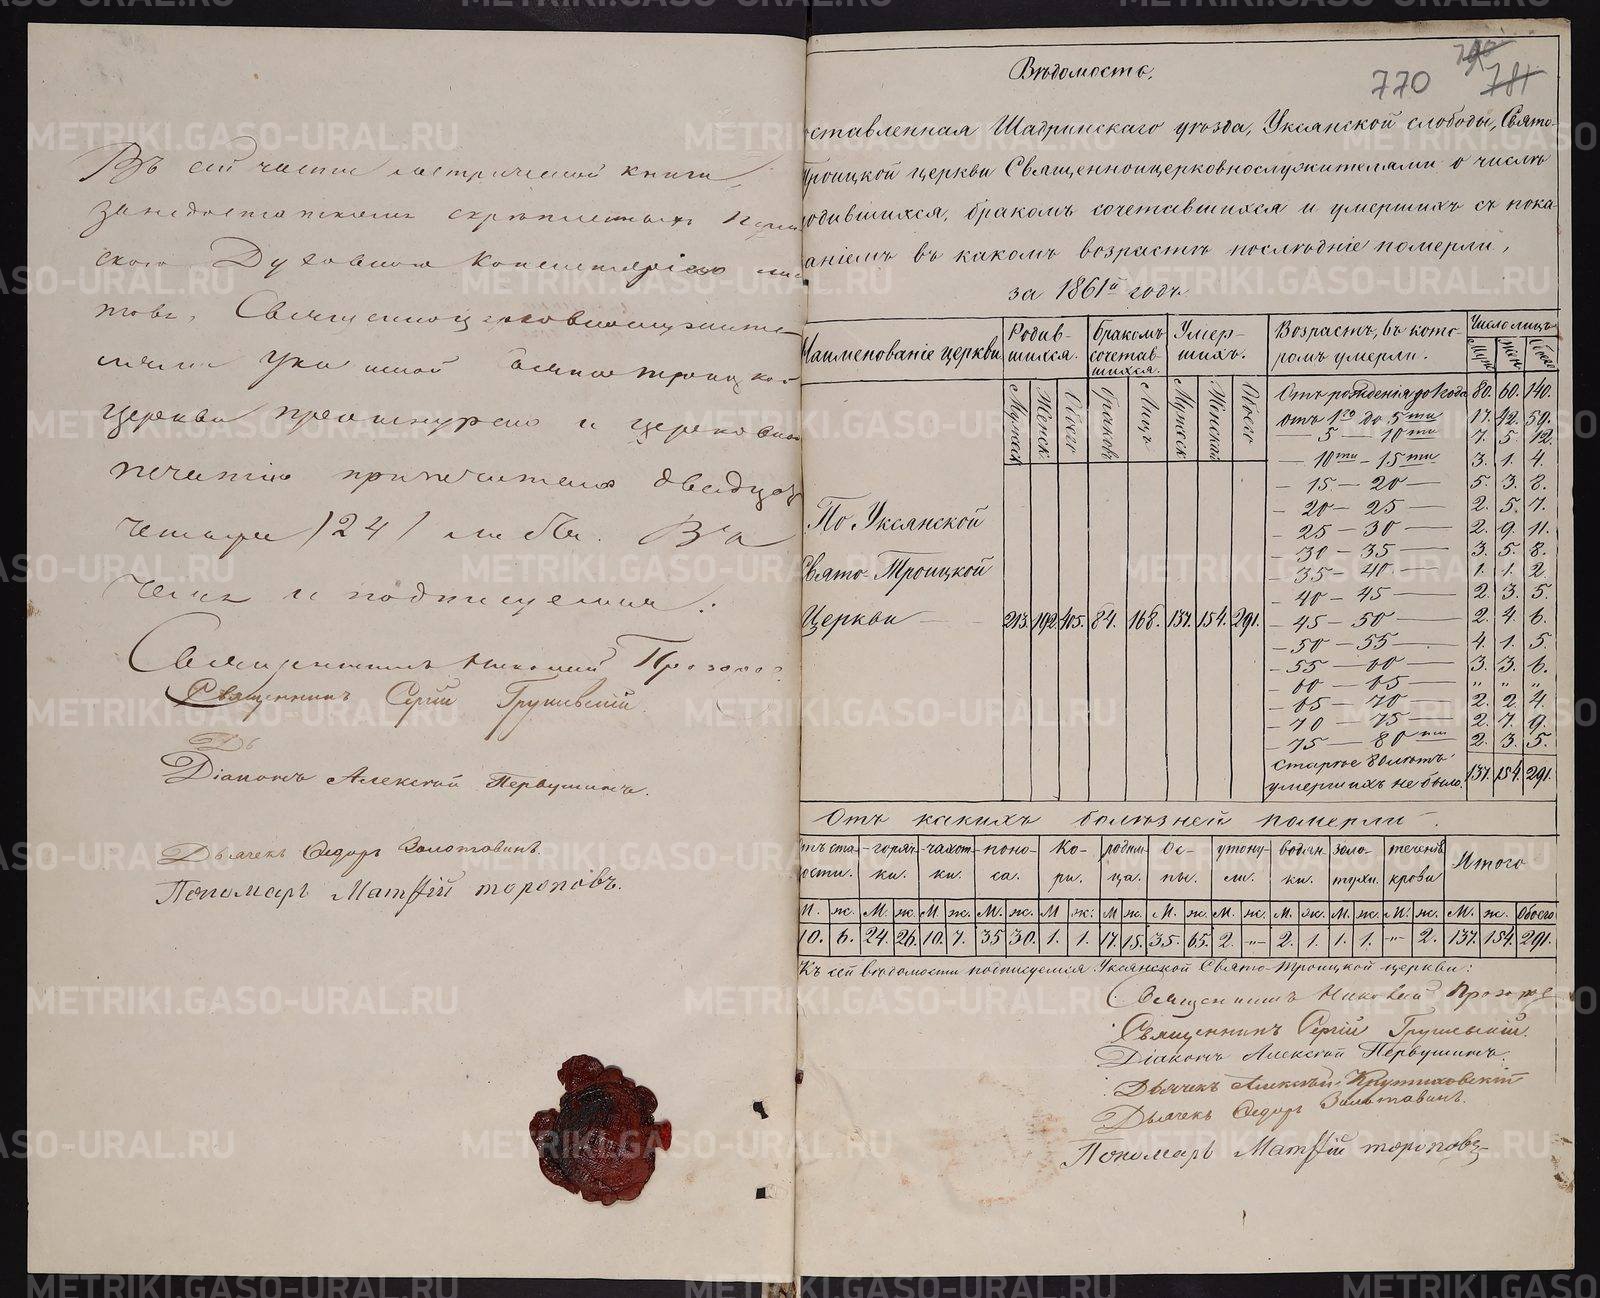 Въ сей части метрической книги,
за недостаткомъ скрѣпленныхъ Перм
скою Духовною Консисторіею лис
товъ, Священноцерковнослужите
лями Укс нской Свято троицкой
церкви прошнурено и церковною
печатію припечатано двадцать
четыре /24/ листа. Въ
чемъ и подписуемся:
Священникъ Николай Прозоро
Священникъ Сергій Грушевскій.
Дь
Діаконъ Алексѣй Первушинъ.
Дьячекъ Ѳедоръ Золотавинъ.
Пономарь Матѳій тороповъ.
770 781
Вѣдомость,
оставленная Шадринскаго уѣзда, Уксянской слободы, Свято-
Троицкой церкви Священноицерковнослужителями о числѣ
родившихся, бракомъ сочетавшихся и умершихъ съ пока
заніемъ въ какомъ возрастѣ послѣдніе померли,
за 1861й годъ
Наименованіе церкви Родив-шихся. Бракомъ сочетав-шихся. Умер-шихъ. Возрастъ, въ кото-ромъ умерли. Число лицъ
Мужеск Женск. Обоего браковъ Лицъ Мужеск Женскаго Обоего Муж Жен Обоего
По Уксянской
Свято-Троицкой
Церкви 213. 192. 405. 84. 168. 137. 154. 291.
Отъ рожденія до 1 года 80. 60. 140.
отъ 1го до 5ти 17. 42. 59.
— 5 — 10ти 7. 5. 12.
— 10ти — 15ти 3. 1. 4.
— 15 — 20 — 5. 3. 8.
— 20 — 25 — 2. 5. 7.
— 25 — 30 — 2. 9. 11.
— 30 — 35 — 3. 5. 8.
— 35 — 40 — 1. 1. 2.
— 40 — 45 — 2. 3. 5.
— 45 — 50 — 2. 4. 6.
— 50 — 55 — 4. 1. 5.
— 55 — 60 — 3. 3. 6.
— 60 — 65 — " " "
— 65 — 70 — 2. 2. 4.
— 70 — 75 — 2. 7. 9.
— 75 — 80ти 2. 3. 5.
старѣе 80 лѣтъ
умершихъ не было. 137. 154. 291.
Отъ какихъ болѣзней померли
отъ ста-рости. горяч-ки. чахот-ки. поно-са. Ко-ри. родим-ца. Ос-пы. утону-ли. водян-ки. золо-тухи. теченія крови Итого
М. ж. М. ж. М. ж. М. ж. М ж. М ж. М. ж. М. ж. М. ж. М. ж. М. ж. М. ж. Обоего
10. 6. 24. 26. 10. 7. 35 30. 1. 1. 17. 15. 35. 65. 2. -"- 2. 1. 1. 1. -"- 2. 137. 154. 291.
Къ сей вѣдомости подписуемся Уксянской Свято-Троицкой церкви:
Священникъ Николай Прозоро
Священникъ Сергій Грушевскій.
Діаконъ Алексѣй Первушинъ.
Дьячекъ Алексѣй Крутиховскій
Дьячекъ Ѳедоръ Золотавинъ.
Пономарь Матѳій тороповъ
METRIKI.GASO-URAL.RU